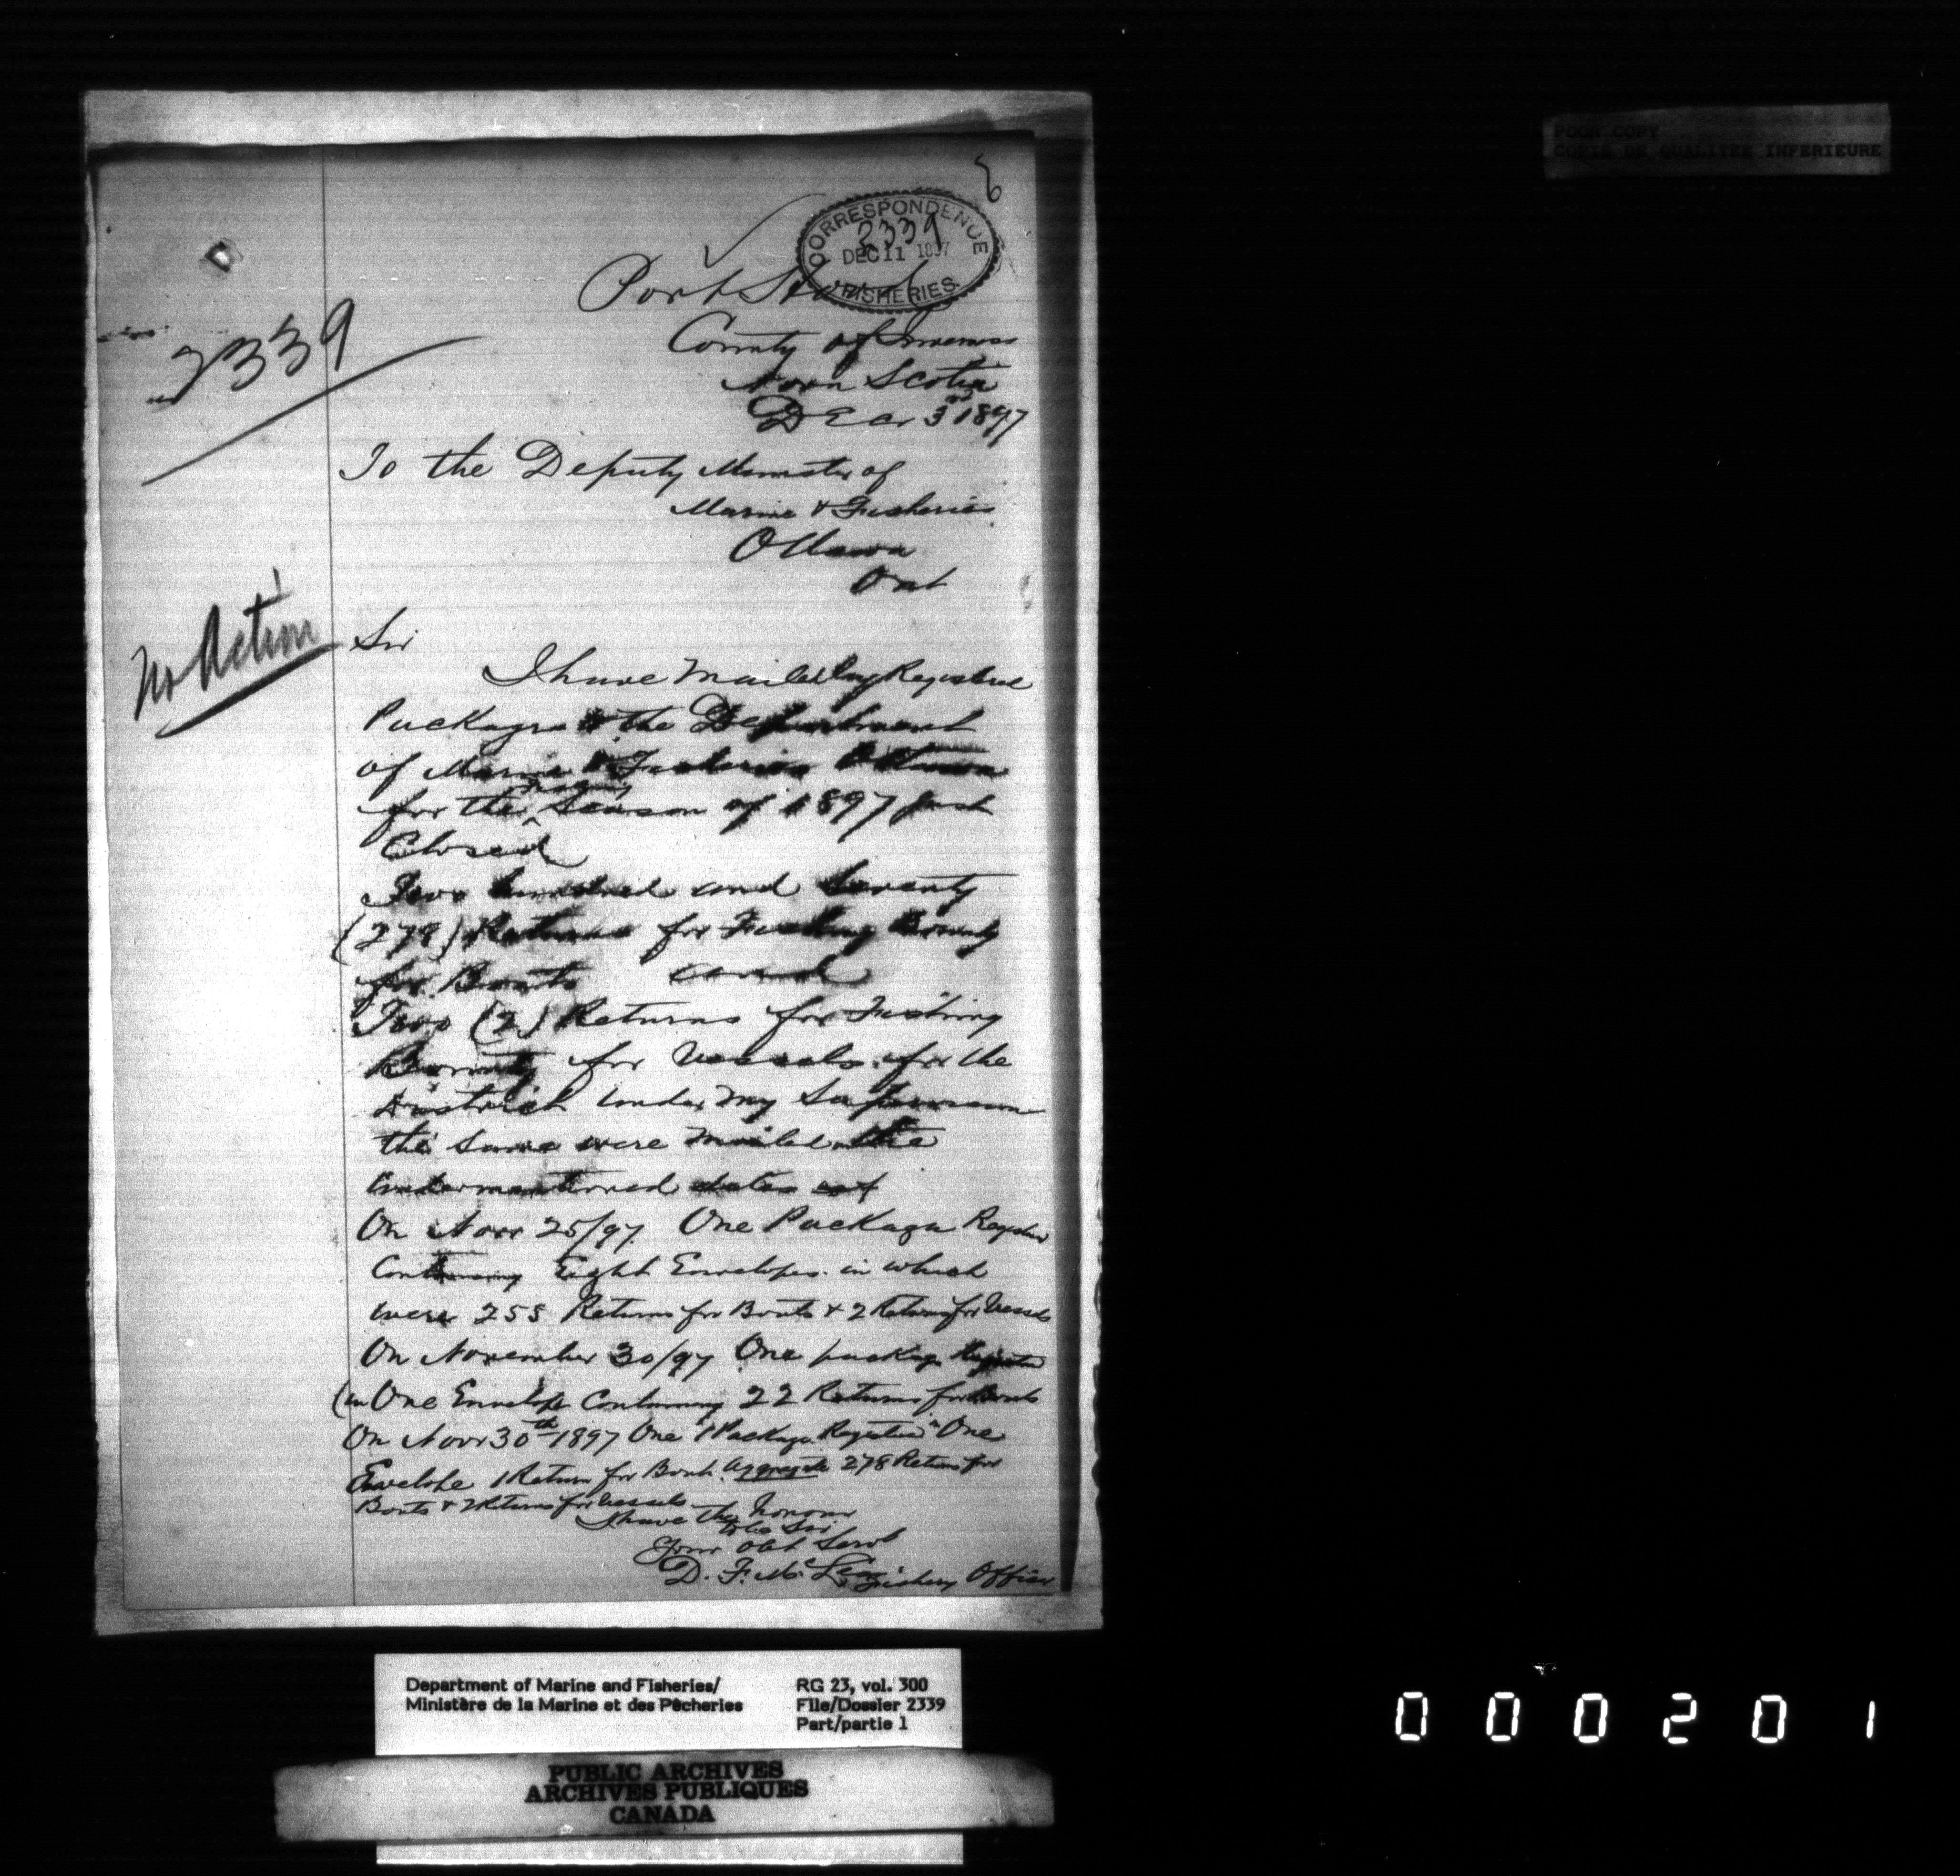 POOR COPY
COPIE DE QUALITEE INFERIEURE
6
CORRESPONDENCE
2339
DEC 11 1897
FISHERIES.
Port Hood
County of Inverness
Nova Scotia
Decr 3rd 1897
2339
To the Deputy Minister of
Marine & Fisheries
Ottawa
Ont
No Action
Sir
I have Mailed by Registered
Packages to the Department
of Marine & Fisheries Ottawa
for the Season of 1897 just
Closed
Two hundred and Seventy
(278) Returns for Fishing Bounty
for Boats and
Two (2) Returns for Fishing
Bounty for Vessels for the
District under my Supervision
the Same were Mailed the
undermentioned dates
On Novr 25/97. One Package Register
Containing Eight Envelopes in which
were 255 Returns for Boats & 2 Returns for Vessels
On November 30/97 One package Register
(in One Envelope Containing 22 Returns for Boats
On Novr 30th 1897 One 1 Package Register in One
Envelope 1 Return for Boat. Aggregate 278 Returns for
Boats & 2 Returns for Vessels
I have the honour
to be Sir
Your Obt Servt
D. F. McLean Fishery Officer
Department of Marine and Fisheries/
Ministère de la Marine et des Pêcheries
RG 23, vol. 300
File/Dossier 2339
Part/partie 1
PUBLIC ARCHIVES
ARCHIVES PUBLIQUES
CANADA
000201